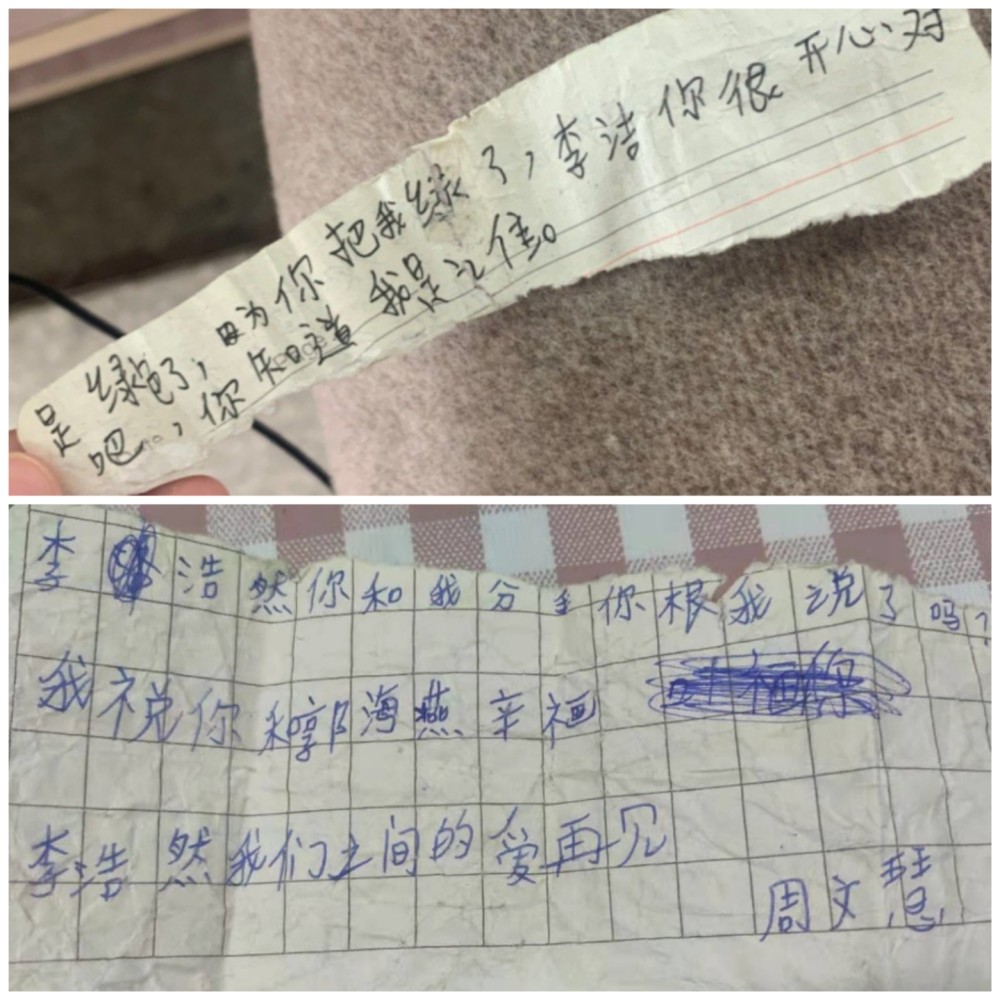 是绿色了，因为你把我绿了，李洁你很开心对
吧，你知道我是之佳。
李浩然你和我分手你根我说了吗？
我祝你和郭海燕辛福
李浩然我们之间的爱再见
周文慧